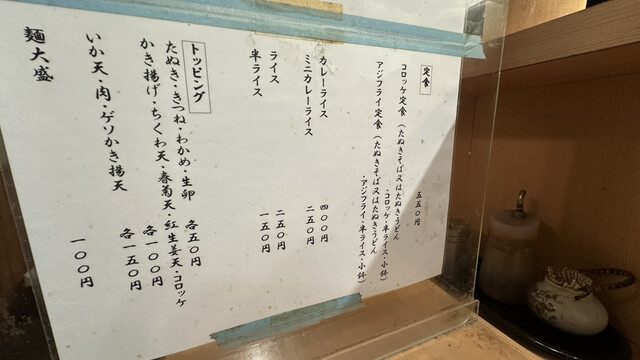 定食
コロッケ定食（たぬきそば又はたぬきうどん
・コロッケ・半ライス・小鉢）
五五〇円
アジフライ定食（たぬきそば又はたぬきうどん
・アジフライ・半ライス・小鉢）
カレーライス 四〇〇円
ミニカレーライス 二五〇円
ライス 二五〇円
半ライス 一五〇円
トッピング
たぬき・きつね・わかめ・生卵 各五〇円
かき揚げ・ちくわ天・春菊天・紅生姜天・コロッケ 各一〇〇円
いか天・肉・ゲソかき揚天 各一五〇円
麺大盛 一〇〇円